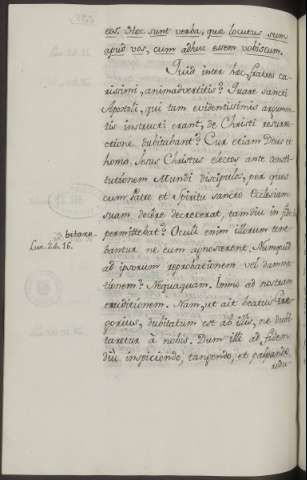 eos. Hec sunt verba, que locutus sum
apud vos, cum adhuc essem vobiscum.
Quid inter hec, fratres ca-
rissimi, animadvertitis? Quare sancti
Apostoli, qui tam evidentissimis argumen-
tis instructi erant, de Christi resurre-
ctione dubitabant? Cur etiam Deus et
homo Jesus Christus electos ante consti-
tutionem Mundi discipulos, per quos
cum Patre et Spiritu sancto Ecclesiam
suam decrecerat, tamdiu in
permittebat? Oculi enim illorum tene-
bantur ne eum agnoscerent. Numquid
Luc. 24. 16.
ad ipsorum reprobationem vel damna-
tionem? Nequaquam. Immo ad nostram
eruditionem. Nam, ut ait beatus Gre-
gorius, dubitatum est ab illis, ne dubi-
taretur à nobis. Dum ille ad fidem
diu inspiciendo, tangendo, et palpando